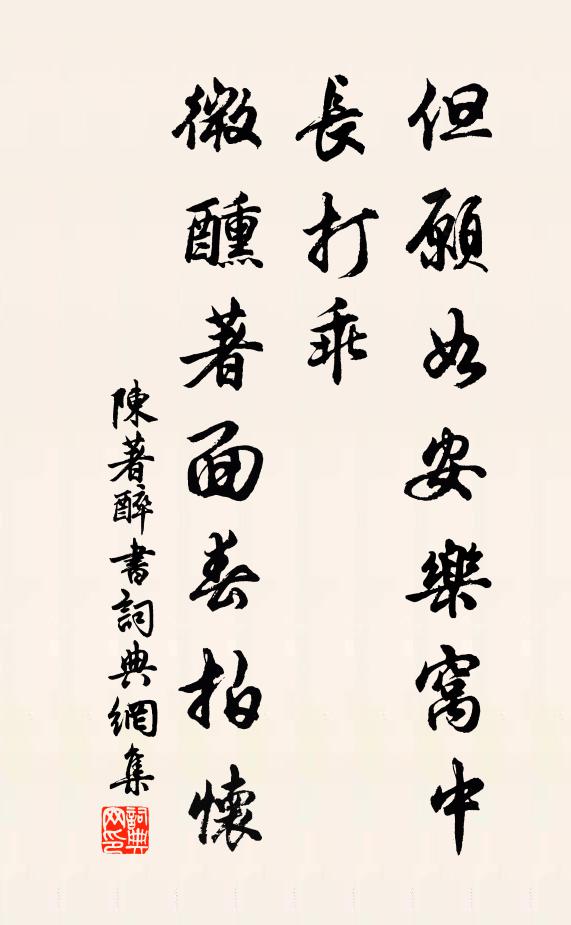 但願如安樂窩中
長打乖
微醺著面春拍懷
陳著醉書詞典網集
詞典網印